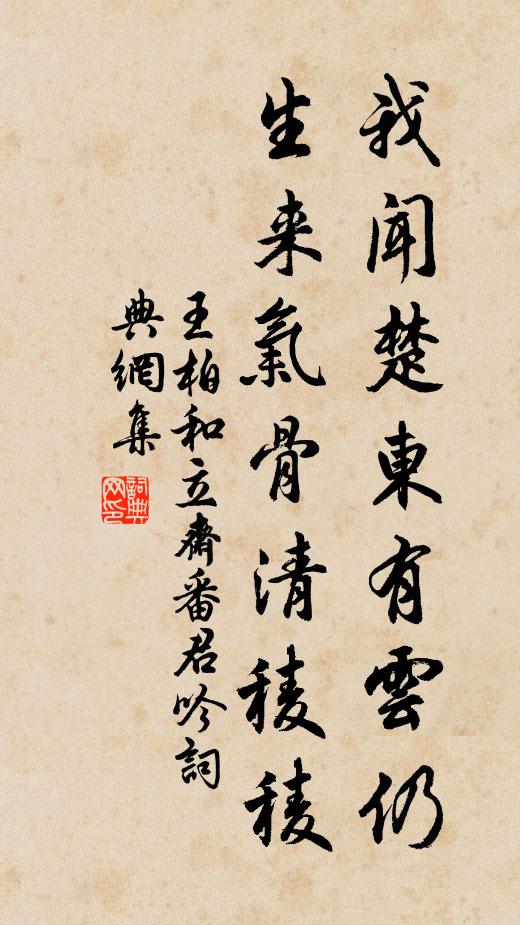 我聞楚東有雲仍
生来氣骨清稜稜
王柏和立齋番君吟詞
典網集
詞典网印